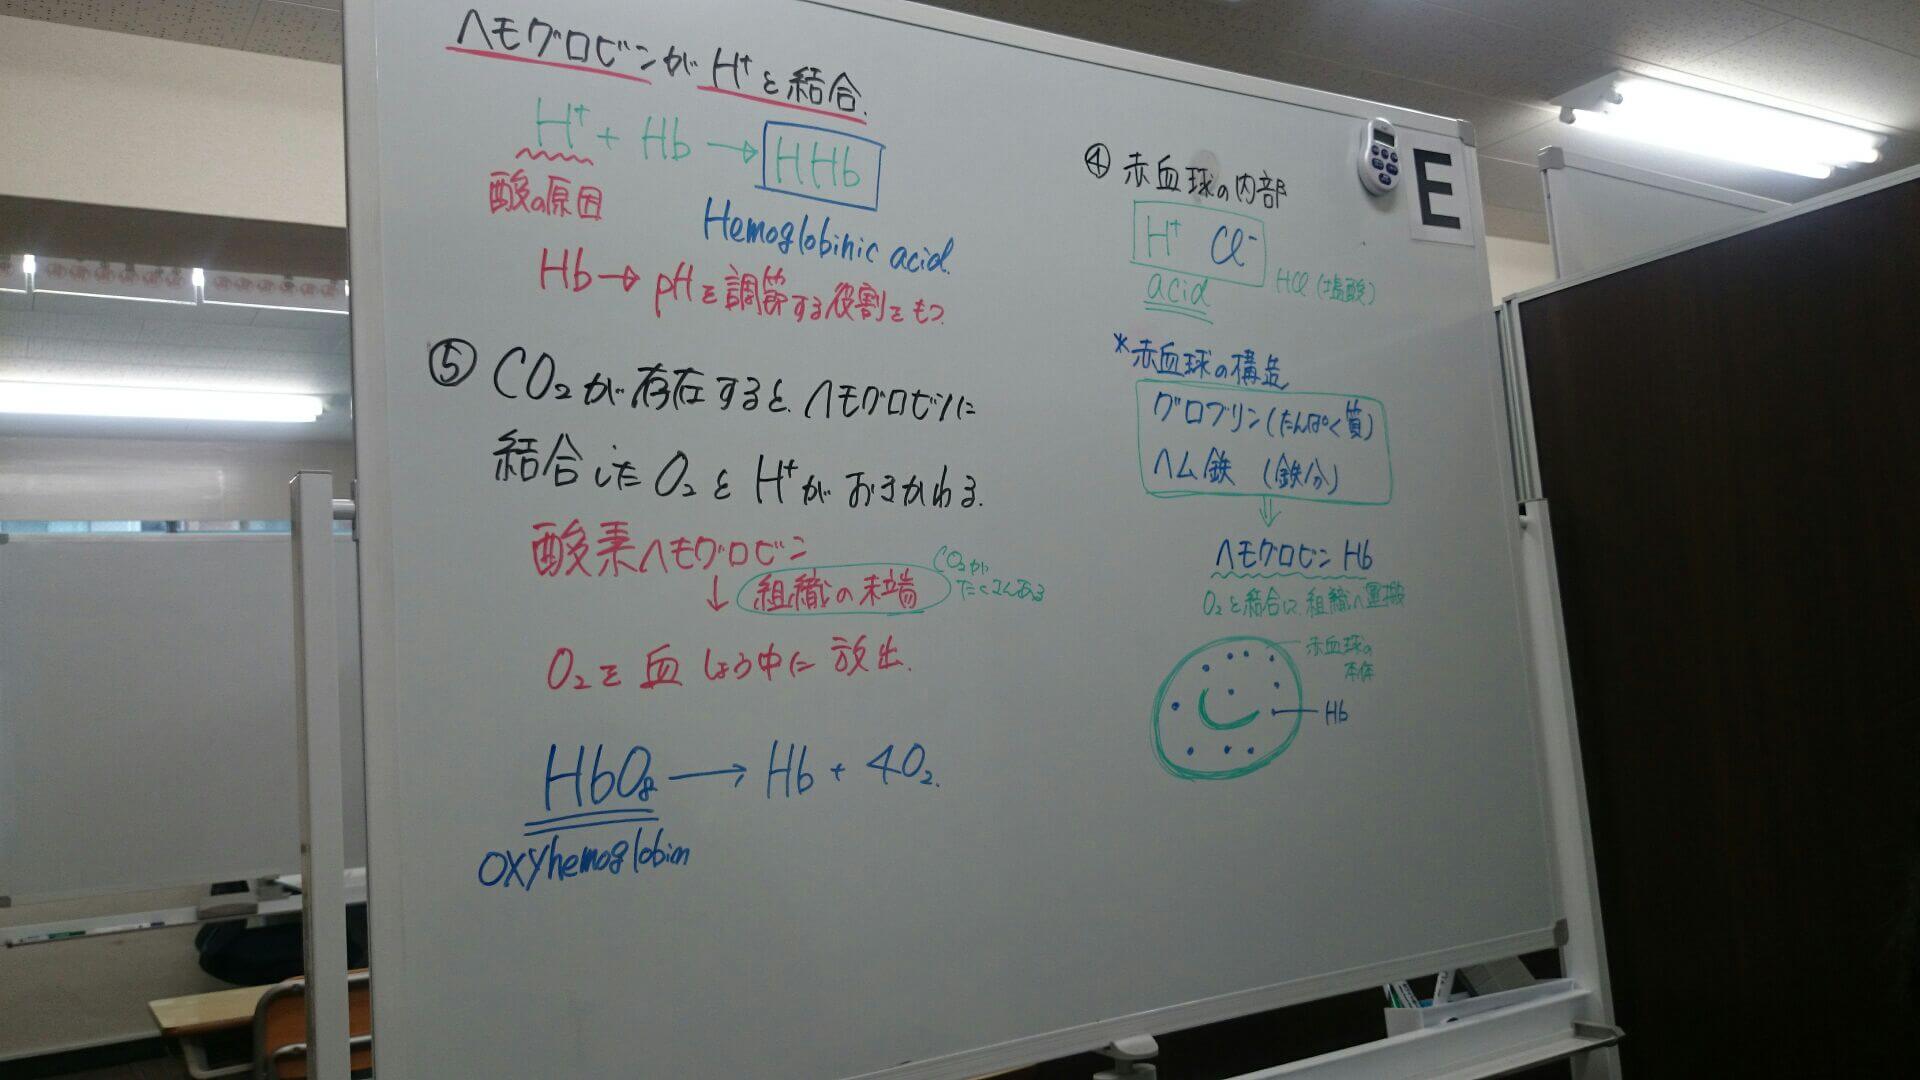 ヘモグロビンがH⁺と結合.
H⁺ + Hb → HHb
酸の原因
Hemoglobinic acid.
Hb → pHを調節する役割をもつ
⑤ CO₂が存在すると、ヘモグロビンに
結合したO₂とH⁺がおきかわる.
酸素ヘモグロビン
↓ 組織の末端
CO₂が
たくさんある
O₂を血しょう中に放出.
HbO₈ → Hb + 4O₂.
oxyhemoglobin
④ 赤血球の内部
H⁺ Cl⁻
acid
HCl (塩酸)
*赤血球の構造
グロブリン(たんぱく質)
ヘム鉄 (鉄分)
↓
ヘモグロビン Hb
O₂と結合して、組織へ運搬
赤血球の
本体
Hb
E